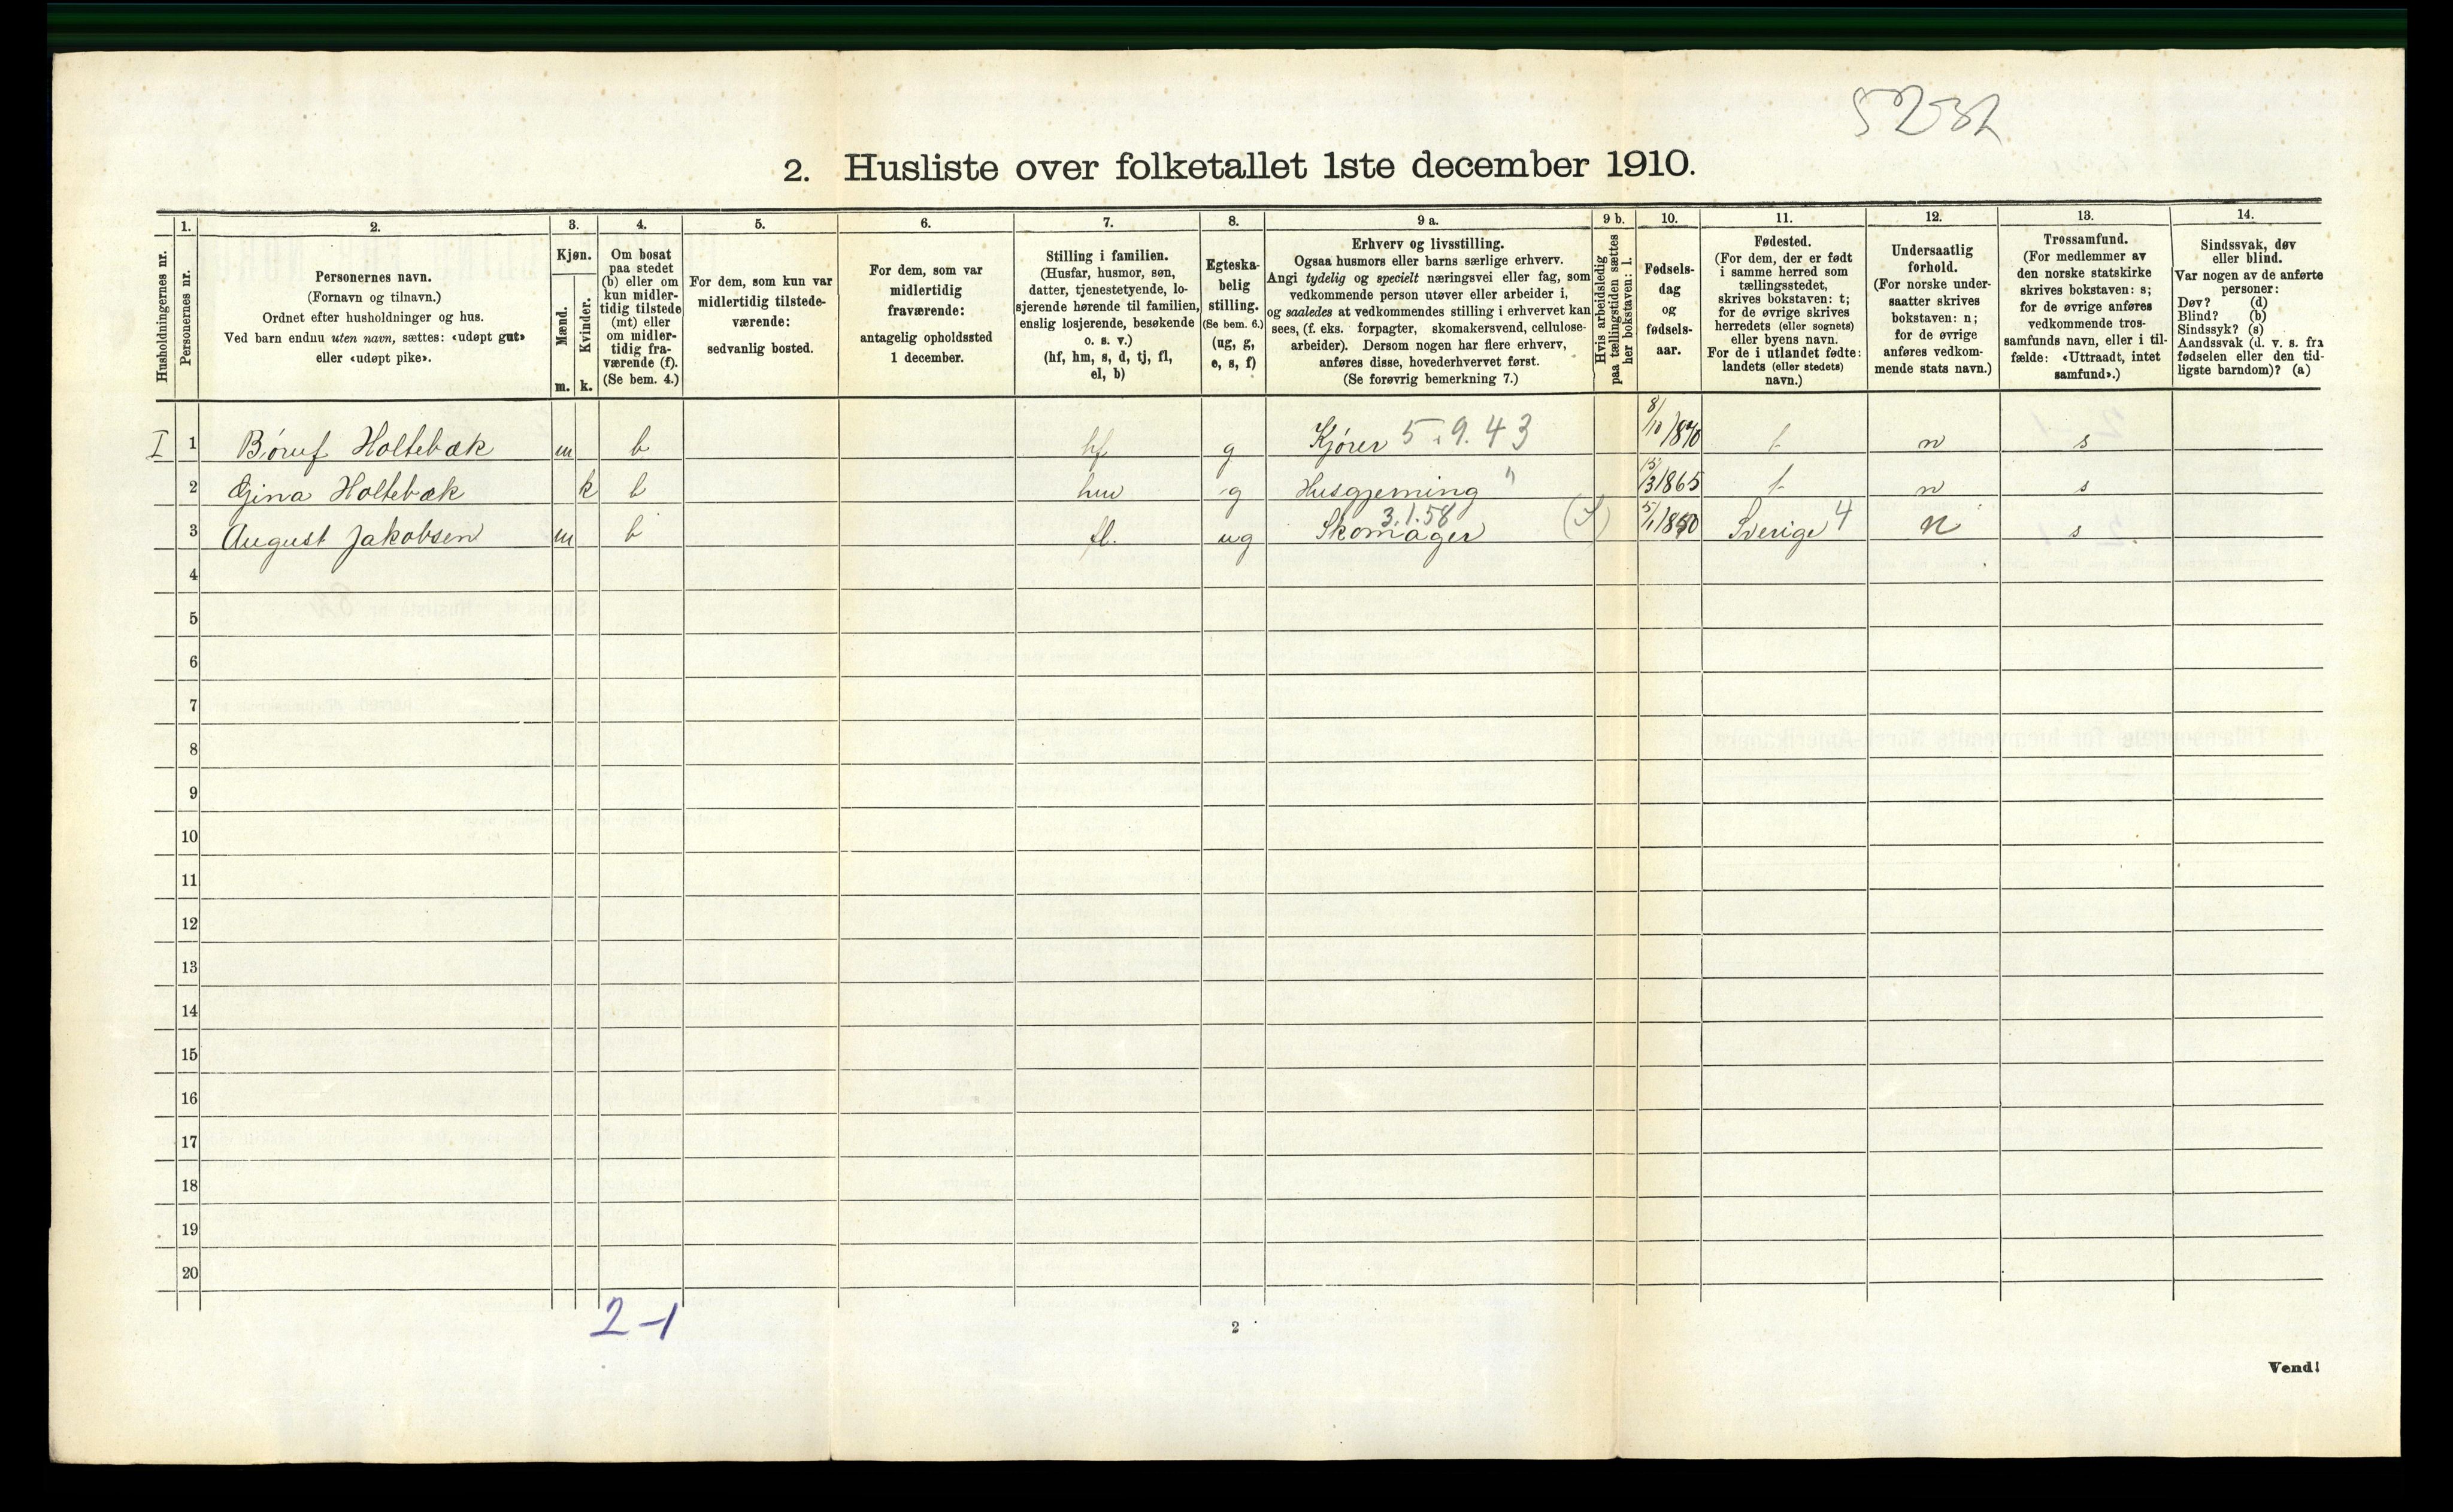 5232
2. Husliste over folketallet 1ste december 1910.
Husholdningernes nr.
1.
Personernes nr.
2.
Personernes navn.
(Fornavn og tilnavn.)
Ordnet efter husholdninger og hus.
Ved barn endnu uten navn, sættes: «udøpt gut»
eller «udøpt pike».
3.
Kjøn.
Mænd.
Kvinder.
m. k.
4.
Om bosat
paa stedet
(b) eller om
kun midler-
tidig tilstede
(mt) eller
om midler-
tidig fra-
værende (f).
(Se bem. 4.)
5.
For dem, som kun var
midlertidig tilstede-
værende:
sedvanlig bosted.
6.
For dem, som var
midlertidig
fraværende:
antagelig opholdssted
1 december.
7.
Stilling i familien.
(Husfar, husmor, søn,
datter, tjenestetyende, lo-
sjerende hørende til familien,
enslig losjerende, besøkende
o. s. v.)
(hf, hm, s, d, tj, fl,
el, b)
8.
Egteska-
belig
stilling.
(Se bem. 6.)
(ug, g,
e, s, f)
9 a.
Erhverv og livsstilling.
Ogsaa husmors eller barns særlige erhverv.
Angi tydelig og specielt næringsvei eller fag, som
vedkommende person utøver eller arbeider i,
og saaledes at vedkommendes stilling i erhvervet kan
sees, (f. eks. forpagter, skomakersvend, cellulose-
arbeider). Dersom nogen har flere erhverv,
anføres disse, hovederhvervet først.
(Se forøvrig bemerkning 7.)
9 b.
Hvis arbeidsledig
paa tællingstiden sættes
her bokstaven: l.
10.
Fødsels-
dag
og
fødsels-
aar.
11.
Fødested.
(For dem, der er født
i samme herred som
tællingsstedet,
skrives bokstaven: t;
for de øvrige skrives
herredets (eller sognets)
eller byens navn.
For de i utlandet fødte:
landets (eller stedets)
navn.)
12.
Undersaatlig
forhold.
(For norske under-
saatter skrives
bokstaven: n;
for de øvrige
anføres vedkom-
mende stats navn.)
13.
Trossamfund.
(For medlemmer av
den norske statskirke
skrives bokstaven: s;
for de øvrige anføres
vedkommende tros-
samfunds navn, eller i til-
fælde: «Uttraadt, intet
samfund».)
14.
Sindssvak, døv
eller blind.
Var nogen av de anførte
personer:
Døv? (d)
Blind? (b)
Sindssyk? (s)
Aandssvak (d. v. s. fra
fødselen eller den tid-
ligste barndom)? (a)
I 1 Holtebæk m b hf g Kjører 5.9.43 8/10 1870 t n s
2 Gina Holtebæk k b hm g Husgjerning " 15/3 1865 t n s
3 August Jakobsen m b fl. ug Skomager 3.1.58 5/1 1850 Sverige 4 n s
4
5
6
7
8
9
10
11
12
13
14
15
16
17
18
19
20
2-1
2
Vend!